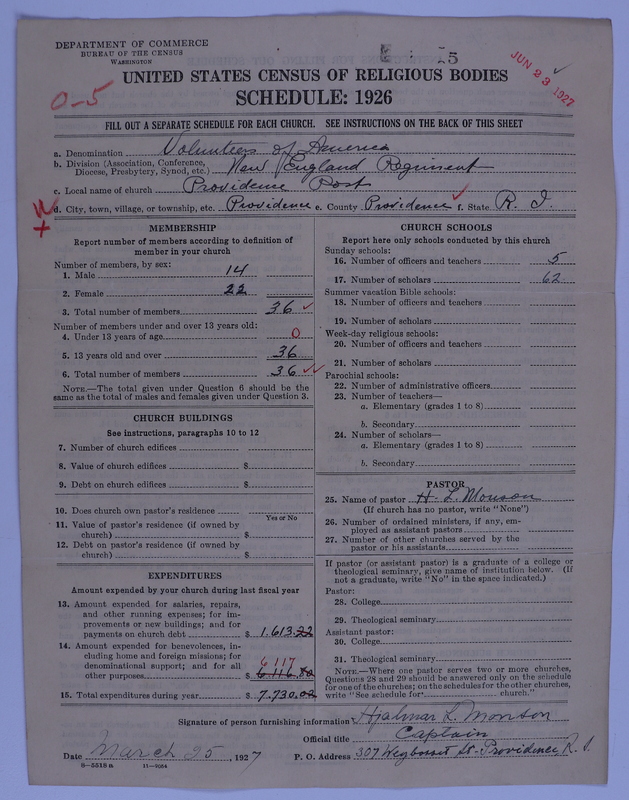 DEPARTMENT OF COMMERCE
BUREAU OF THE CENSUS
WASHINGTON
15
JUN 23 1927
UNITED STATES CENSUS OF RELIGIOUS BODIES
SCHEDULE: 1926
0-5
FILL OUT A SEPARATE SCHEDULE FOR EACH CHURCH. SEE INSTRUCTIONS ON THE BACK OF THIS SHEET
a. Denomination Volunteers of America
b. Division (Association, Conference, Diocese, Presbytery, Synod, etc.) New England Regiment
c. Local name of church Providence Post
d. City, town, village, or township, etc. Providence e. County Providence f. State R. I.
MEMBERSHIP
Report number of members according to definition of
member in your church
Number of members, by sex:
1. Male 14
2. Female 22
3. Total number of members 36
Number of members under and over 13 years old:
4. Under 13 years of age 0
5. 13 years old and over 36
6. Total number of members 36
NOTE.—The total given under Question 6 should be the
same as the total of males and females given under Question 3.
CHURCH BUILDINGS
See instructions, paragraphs 10 to 12
7. Number of church edifices
8. Value of church edifices $
9. Debt on church edifices $
10. Does church own pastor's residence
Yes or No
11. Value of pastor's residence (if owned by
church) $
12. Debt on pastor's residence (if owned by
church) $
EXPENDITURES
Amount expended by your church during last fiscal year
13. Amount expended for salaries, repairs,
and other running expenses; for im-
provements or new buildings; and for
payments on church debt $ 1,613.22
14. Amount expended for benevolences, in-
cluding home and foreign missions; for
denominational support; and for all
other purposes $ 6 117
15. Total expenditures during year $ 7,730.02
CHURCH SCHOOLS
Report here only schools conducted by this church
Sunday schools:
16. Number of officers and teachers 5
17. Number of scholars 62
Summer vacation Bible schools:
18. Number of officers and teachers
19. Number of scholars
Week-day religious schools:
20. Number of officers and teachers
21. Number of scholars
Parochial schools:
22. Number of administrative officers
23. Number of teachers—
a. Elementary (grades 1 to 8)
b. Secondary
24. Number of scholars—
a. Elementary (grades 1 to 8)
b. Secondary
PASTOR
25. Name of pastor H. L. Monson
(If church has no pastor, write "None")
26. Number of ordained ministers, if any, em-
ployed as assistant pastors
27. Number of other churches served by the
pastor or his assistants
If pastor (or assistant pastor) is a graduate of a college or
theological seminary, give name of institution below. (If
not a graduate, write "No" in the space indicated.)
Pastor:
28. College
29. Theological seminary
Assistant pastor:
30. College
31. Theological seminary
NOTE.—Where one pastor serves two or more churches,
Questions 28 and 29 should be answered only on the schedule
for one of the churches; on the schedules for the other churches,
write "See schedule for church."
Signature of person furnishing information Hjalmar L. Monson
Official title Captain
Date March 25, 1927 P. O. Address 307 Weybosset St. Providence, R. I.
8—5518 a 11—9054